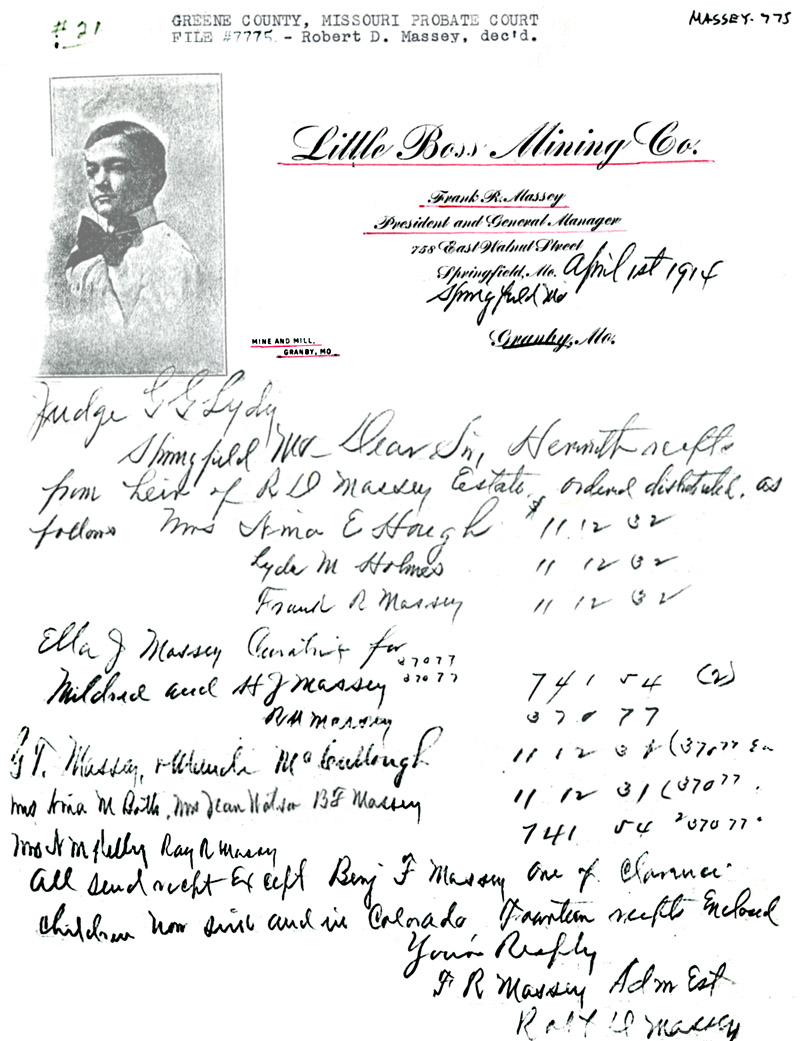 # 21
GREENE COUNTY, MISSOURI PROBATE COURT
FILE #7775 - Robert D. Massey, dec'd.
MASSEY-775
Little Boss Mining Co.
Frank R. Massey
President and General Manager
758 East Walnut Street
Springfield, Mo. April 1st 1914
Springfield Mo
MINE AND MILL,
GRANBY, MO
Granby, Mo.
Judge G G Lydy
Springfield Mo - Dear Sir, Herewith recpts
from heirs of R D Massey Estate, ordered distributed, as
follows Mrs Nina E Hough $ 11 12 32
Lyda M Holmes 11 12 32
Frank R Massey 11 12 32
Ella J Massey Curatrix for
37077
Mildred and H J Massey 37077 741 54 (2)
R H Massey 370 77
G T. Massey, McCullough 11 12 31 (37077 Ea
Mrs Nina M Botts, Mrs Jean Watson B F Massey 11 12 31 (37077
741 54 2 37077
Mrs N M Kelly Ray R Massey
All send recept Except Benj F Massey one of Clarence
children now sick and in Colorado Fourteen recpts Enclosed
Yours Respfly
F R Massey Adm Est
Robt D Massey